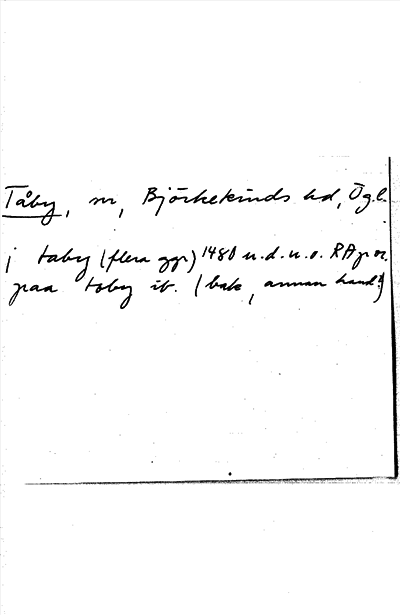 Tåby, sn, Björkekinds hd, Ögl.
j taby (flera ggr) 1480 u.d. u.o. RAp or.
paa toby ib. (bak, annan hand!)